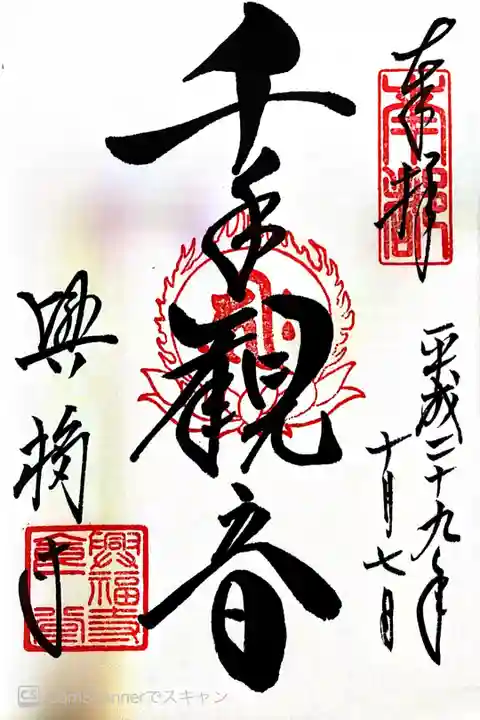 奉拝
南都
平成二十九年
十月七日
千手觀音
興福寺
興福寺
CS CamScannerでスキャン